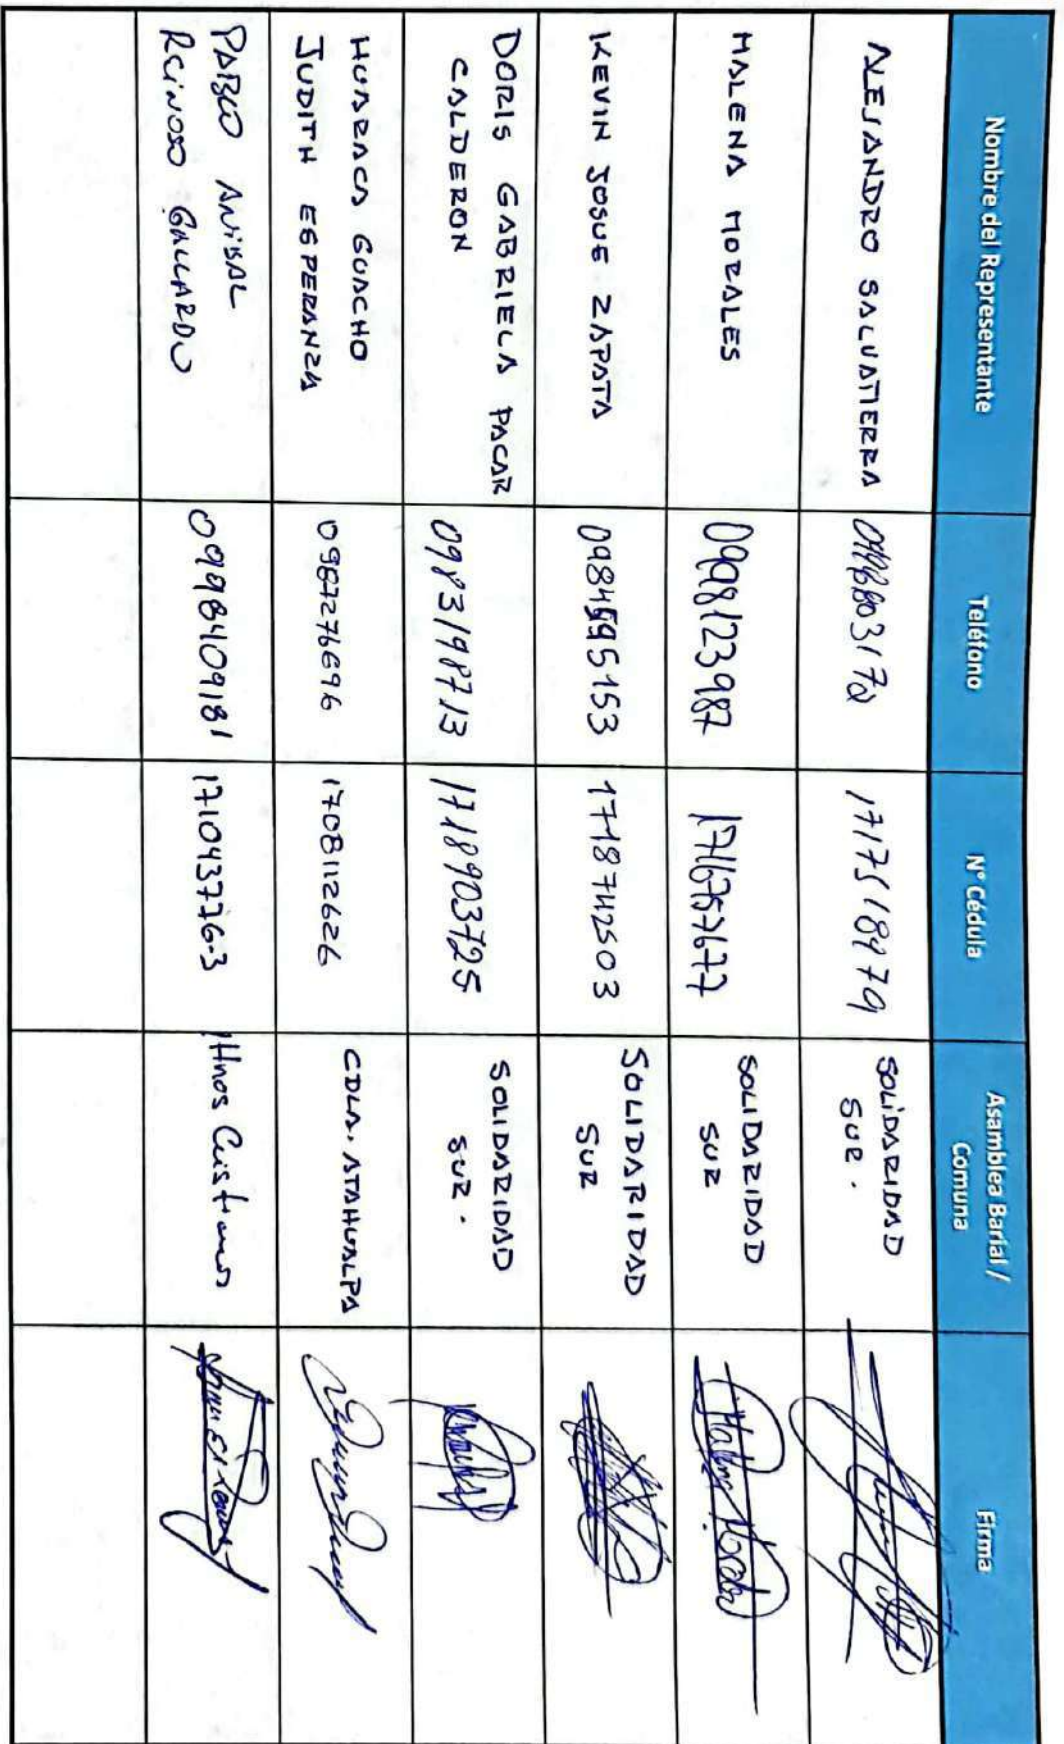 Nombre del Representante
Teléfono
N° Cédula
Asamblea Barial /
Comuna
Firma
ALEJANDRO SALVATIERRA
1717518479
SOLIDARIDAD
SUR.
MALENA MORALES
0998123987
1716757677
SOLIDARIDAD
SUR
KEVIN JOSUE ZAPATA
1718742503
SOLIDARIDAD
SUR
DORIS GABRIELA PACAR
CALDERON
0983198713
1718903725
SOLIDARIDAD
SUR.
HUARACA GUACHO
JUDITH ESPERANZA
0987276696
1708112626
CDLA. ATAHUALPA
PABLO ANIBAL
REINOSO GALLARDO
0998409181
171043776-3
Hnos Cristianos